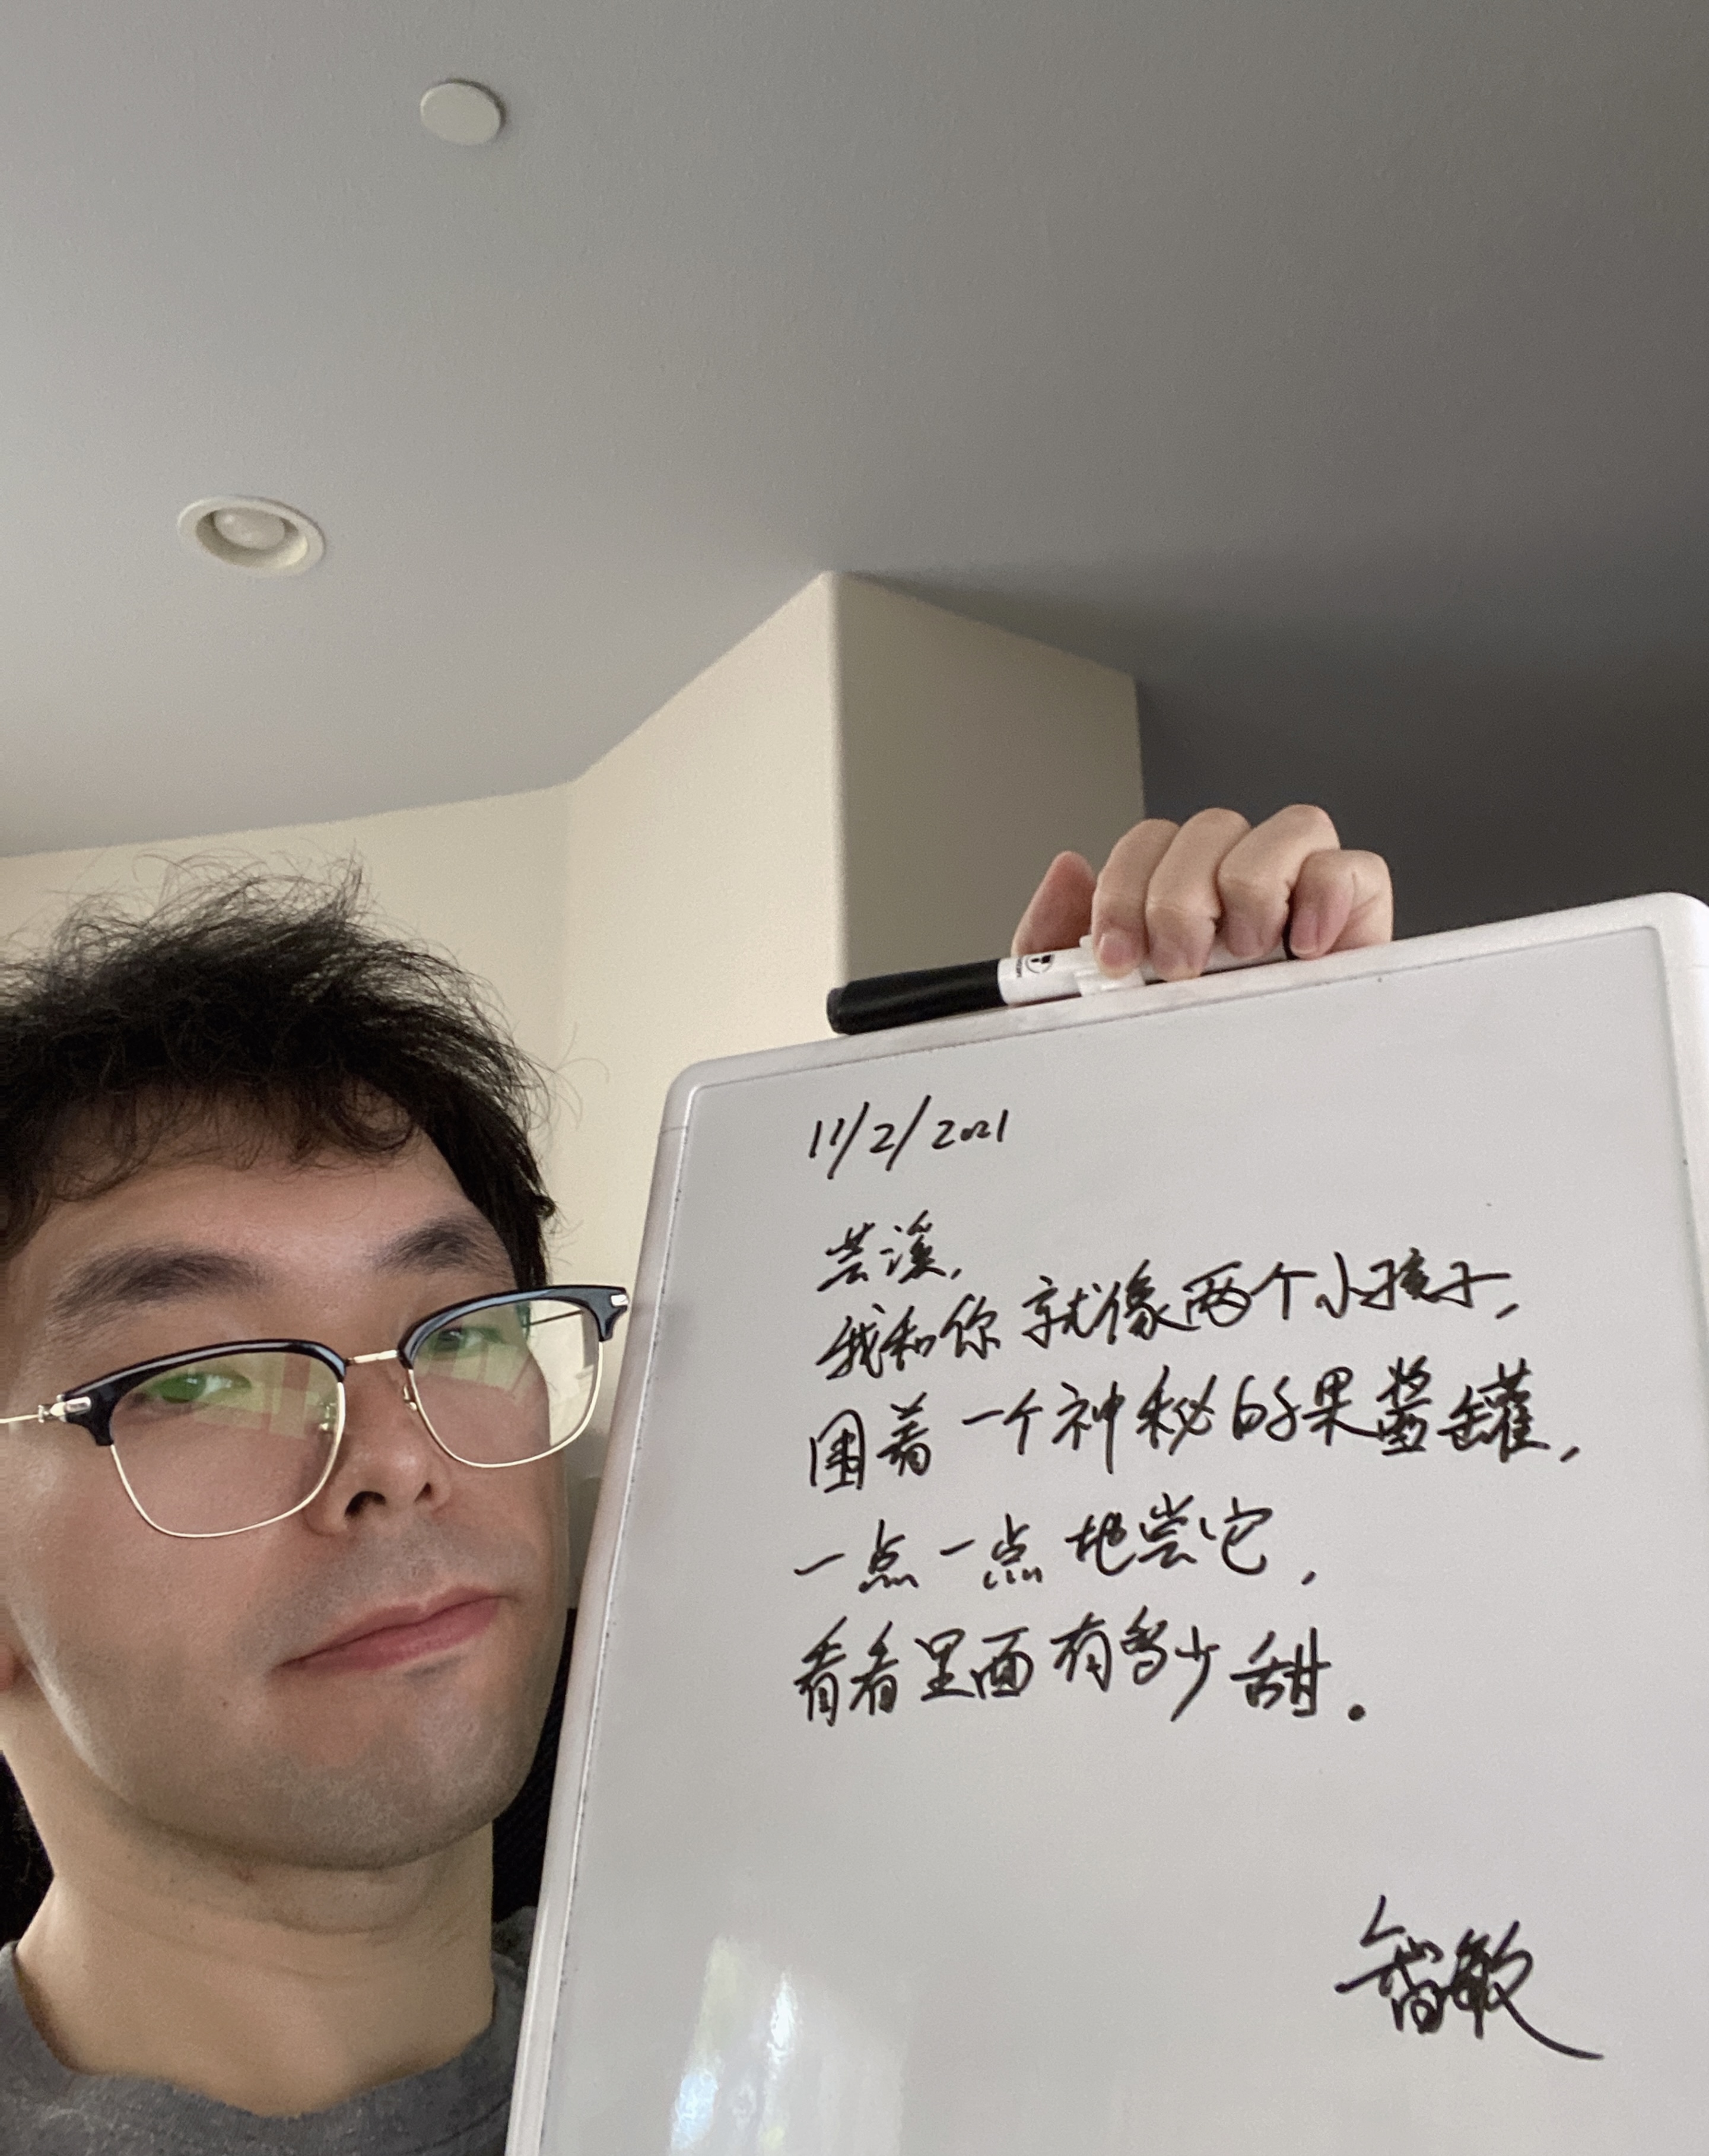 11/2/2021
芸溪,
我和你就像两个小孩子,
围着一个神秘的果酱罐,
一点一点地尝它,
看看里面有多少甜.
智敏